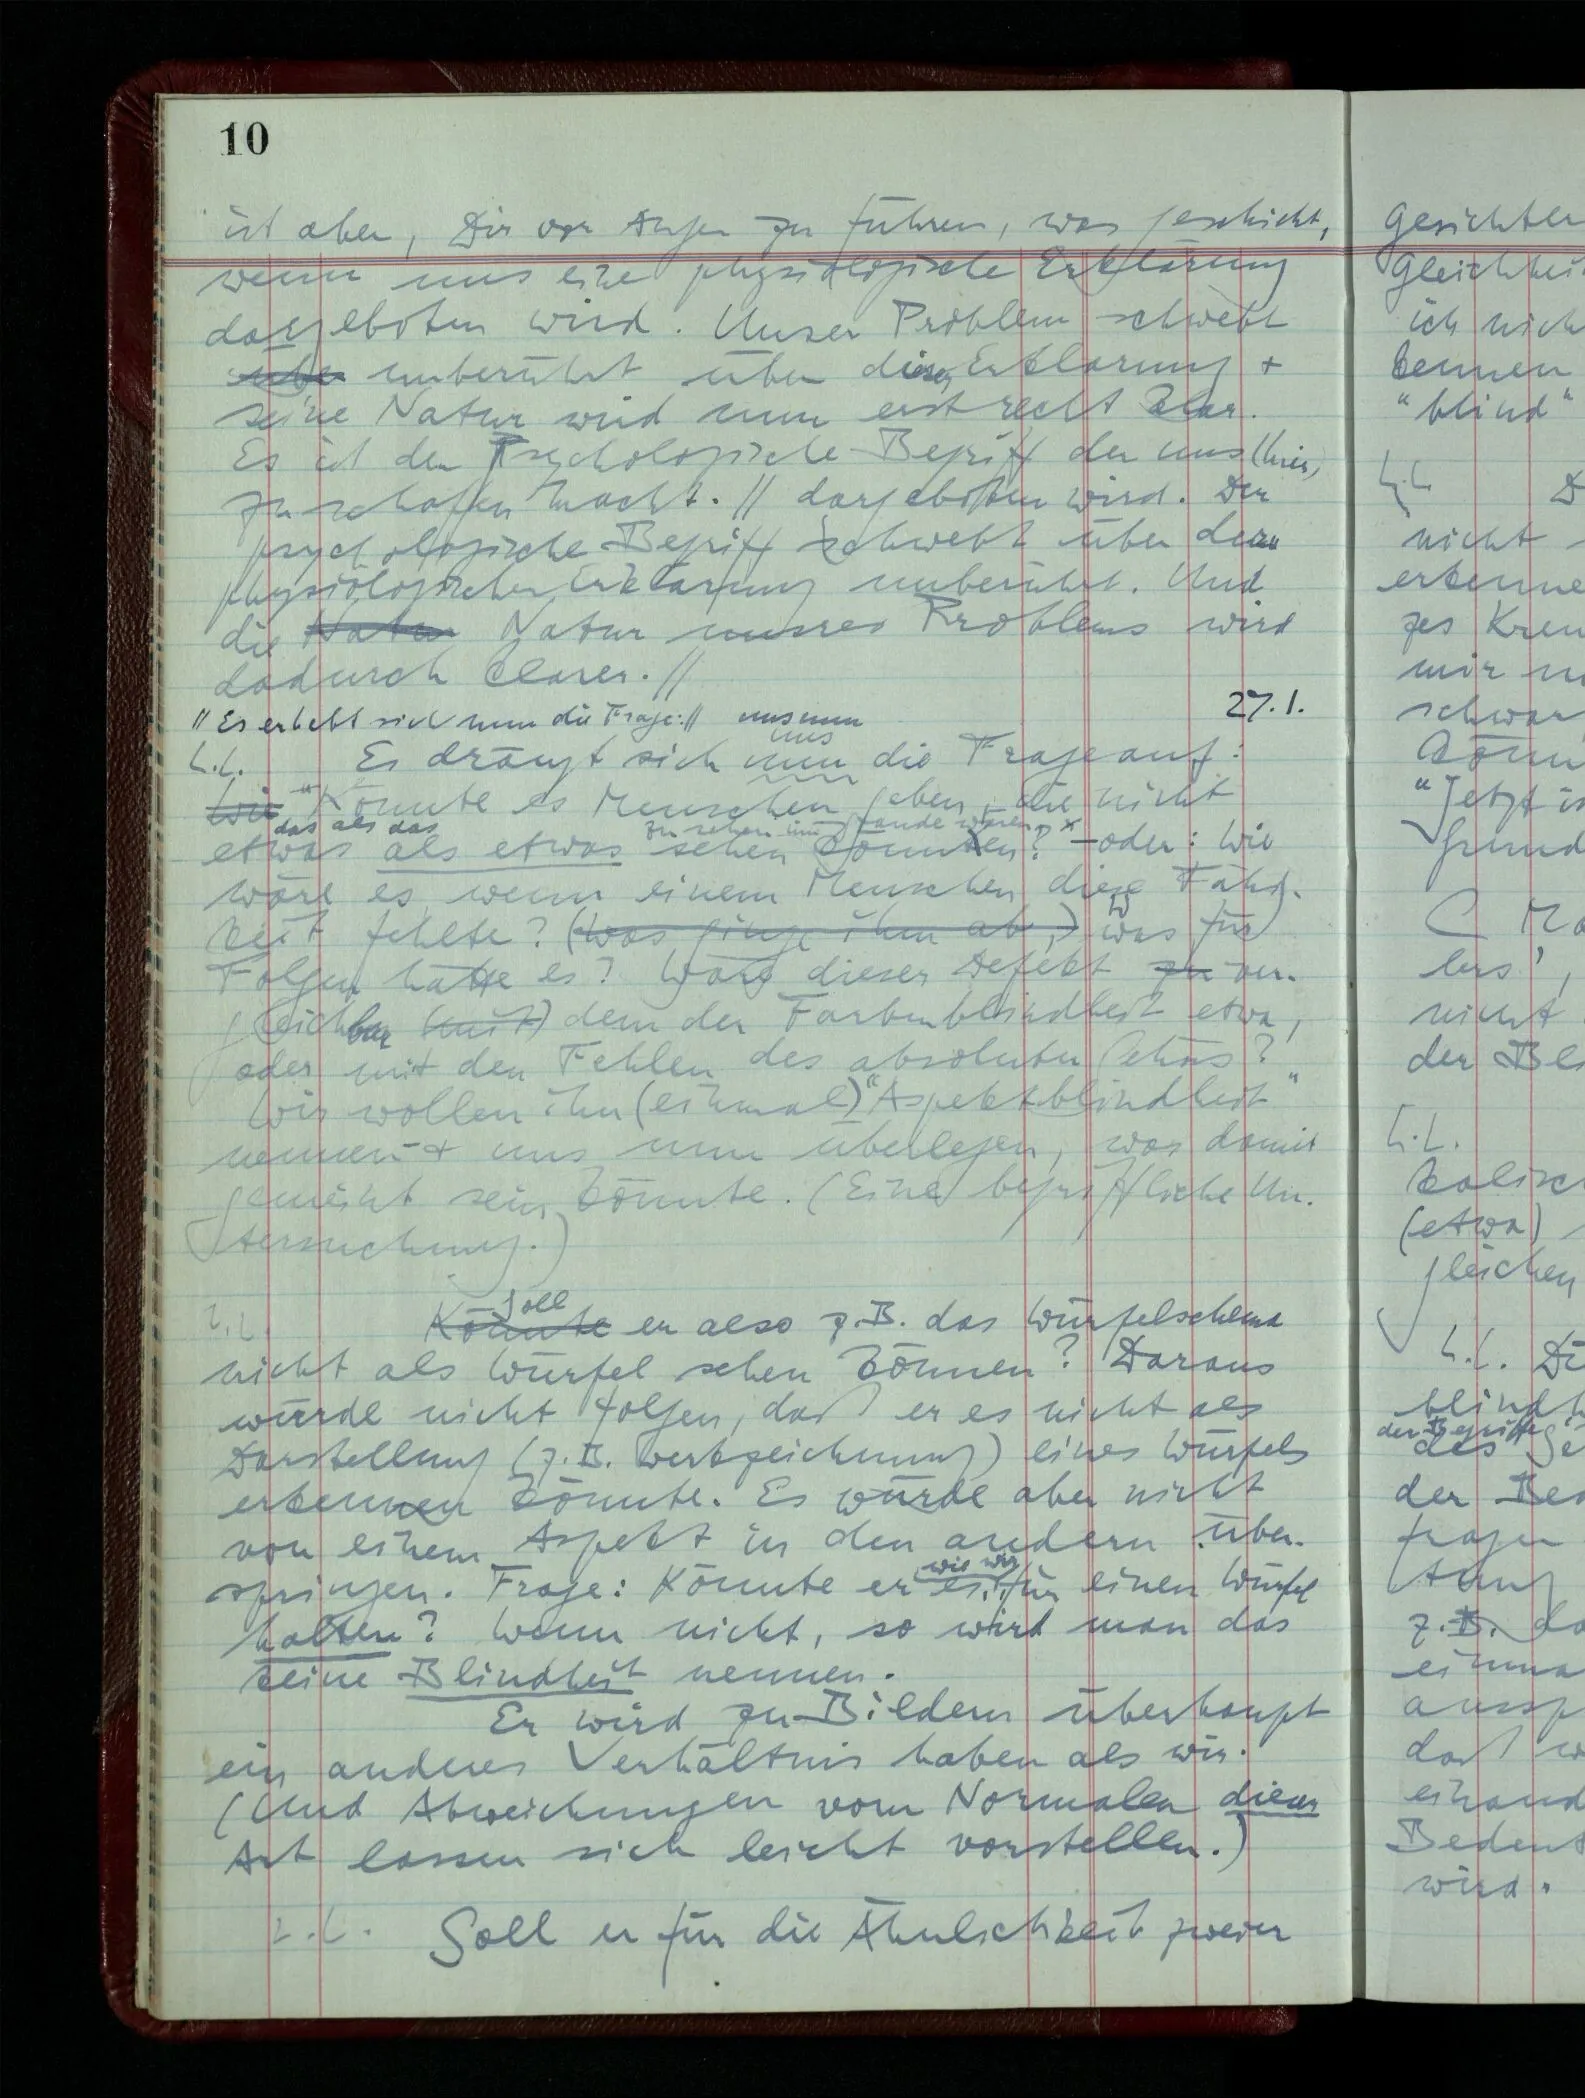 10
ist aber, Dir vor Augen zu führen, was geschieht,
wenn uns eine physiologische Erklärung
dargeboten wird. Unser Problem schwebt
über unberührt über dieser Erklärung +
seine Natur wird nun erst recht klar.
Es ist der Psychologische Begriff der uns (hier)
zu schaffen macht. // dargeboten wird. Der
psychologische Begriff schwebt über der
physiologischen Erklärung unberührt. Und
die Natur Natur unsres Problems wird
dadurch klarer. //
27.1.
// Es erhebt sich nun die Frage: // uns nun
uns
Es drängt sich nun die Frage auf:
Wie "Könnte es Menschen geben, die nicht
das als das zu sehen im Stande wären?"
etwas als etwas sehen könnten? – oder: Wie
wäre es wenn einem Menschen diese Fähig-
keit fehlte? (Was ginge ihm ab,) Was für
Folgen hätte es? Wäre dieser Defekt zu ver-
gleichbar (mit) dem der Farbenblindheit etwa,
oder mit dem Fehlen des absoluten Gehörs?
Wir wollen ihn (einmal) "Aspektblindheit"
nennen – + uns nun überlegen, was damit
gemeint sein könnte. (Eine begriffliche Un-
tersuchung.)
Soll
Könnte er also z.B. das Würfelschema
nicht als Würfel sehen können? Daraus
würde nicht folgen, daß er es nicht als
Darstellung (z.B. Werkzeichnung) eines Würfels
erkennen könnte. Es würde aber nicht
von einem Aspekt in den andern über-
wie wir
springen. Frage: Könnte er es für einen Würfel
halten? Wenn nicht, so wird man das
keine Blindheit nennen.
Er wird zu Bildern überhaupt
ein anderes Verhältnis haben als wir.
(Und Abweichungen vom Normalen dieser
Art lassen sich leicht vorstellen.)
Soll er für die Ähnlichkeit zweier
Gesichter
ich nich
kennen
"blind"
nicht
erkenne
mir
schwar
"Jetzt is
nicht
(etwa)
gleichen
der Begriffe
fragen
z.B.
einma
wird.